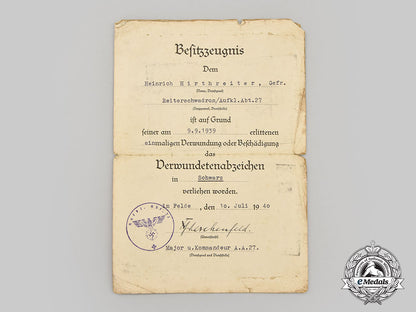 Besitzzeugnis
Dem
Heinrich Hirthreiter, Gefr.
(Name, Dienstgrad)
Reiterschwadron/Aufkl.Abt.27
(Truppenteil, Dienststelle)
ist auf Grund
seiner am 9.9.1939 erlittenen
einmaligen Verwundung oder Beschädigung
das
Verwundetenabzeichen
in Schwarz
verliehen worden.
Im Felde, den 10. Juli 1940
(Unterschrift)
Major u. Kommandeur A.A.27.
(Dienstgrad und Dienststelle)
eMedals